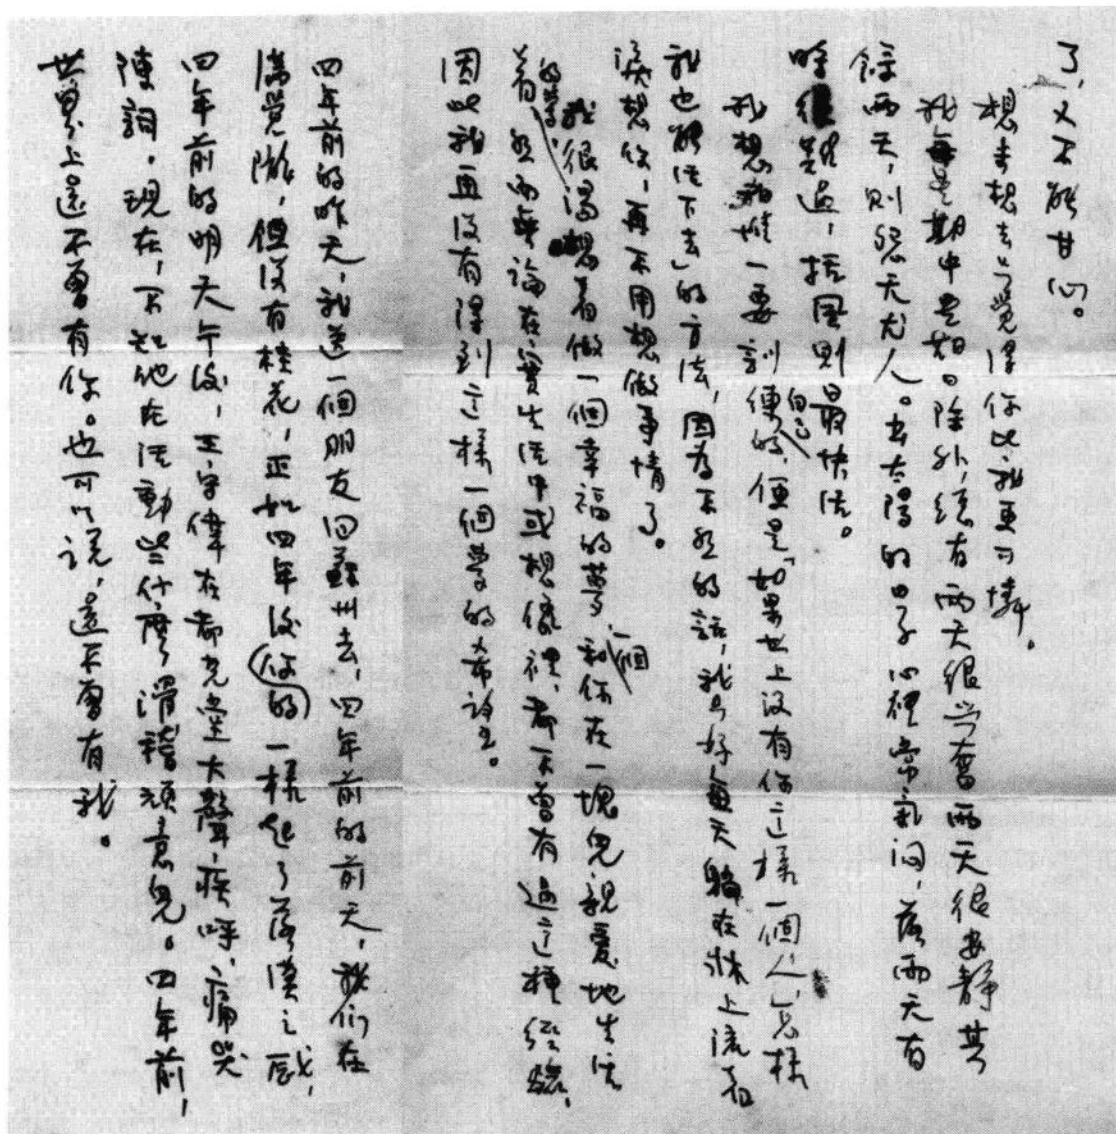 了,又不能甘心。
想來想去,覺得你比我更可憐。
我每星期中星期日除外,總有兩天很兴奮兩天很安靜其
餘兩天,則怨天尤人。出太陽的日子心裡常氣悶,落雨天有
時很難過,括風則最快活。
我想我惟一要訓練自己的,便是「如果世上沒有你這樣一個人,怎樣
我也能活下去」的方法,因為不然的話,我只好每天躺在牀上流着
淚想你,再不用想做事情了。
我很渴想着做一個幸福的夢,一個和你在一塊兒親愛地生活
着的夢,然而無論在實生活中或想像裡,都不曾有過這種經驗,
因此我並沒有得到這樣一個夢的希望。
四年前的昨天,我送一個朋友回蘇州去,四年前的前天,我們在
滿覺隴,但沒有桂花,正如四年後(你的)一樣起了落漠之感,
四年前的明天午後,王守偉在都克堂大聲疾呼,痛哭
陳詞,現在,不知他在活動些什麼滑稽頑意兒。四年前,
世界上還不曾有你。也可以說,還不曾有我。